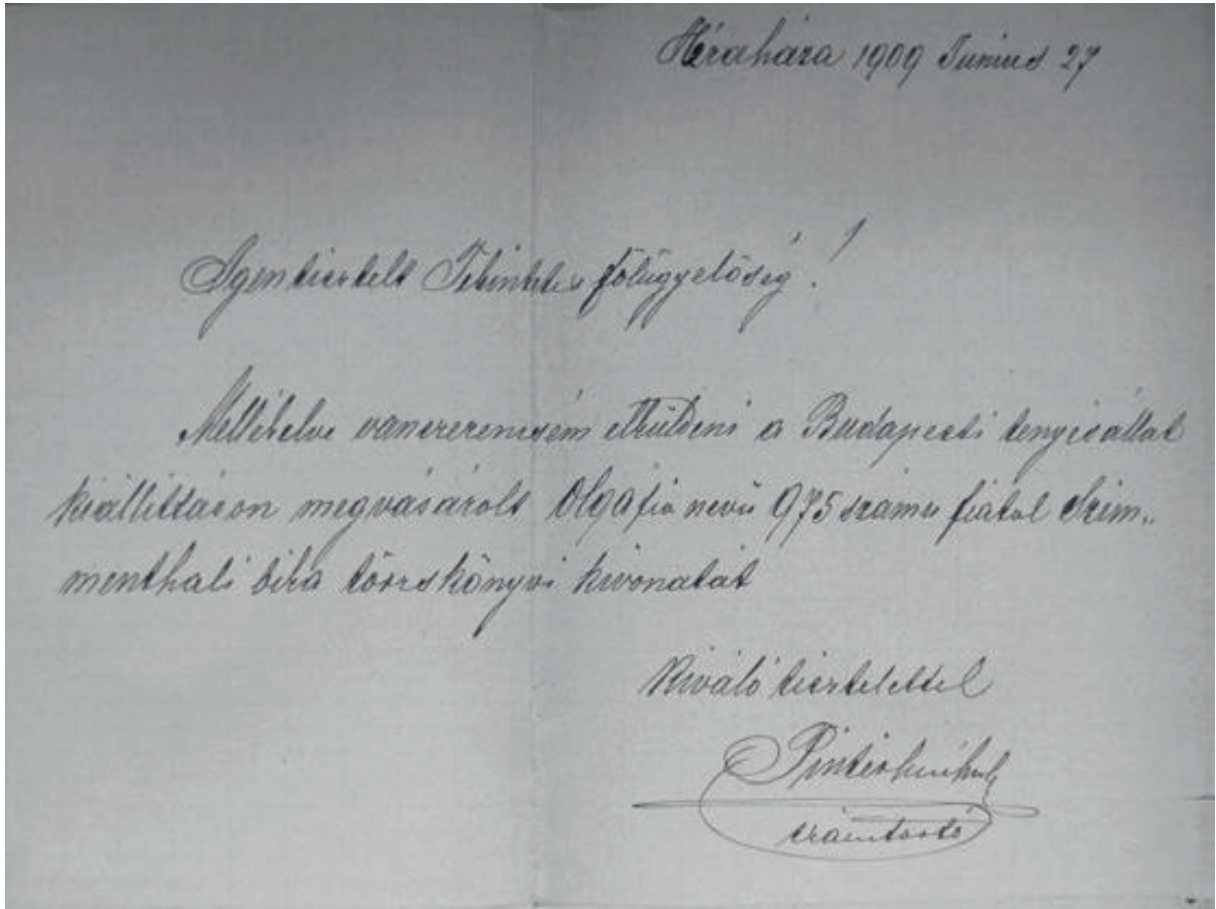 Héraháza 1909 Junius 27
Igentisztelt Tekintetes főlügyelőség!
Mellékelve van szerencsém elküldeni a Budapesti tenyészállat
kiállittáson megvásárolt Olga fia nevü 975 számu fiatal Szim„
menthali bika törzskönyvi kivonatát
Kiváló tisztelettel
Pintér
számtartó